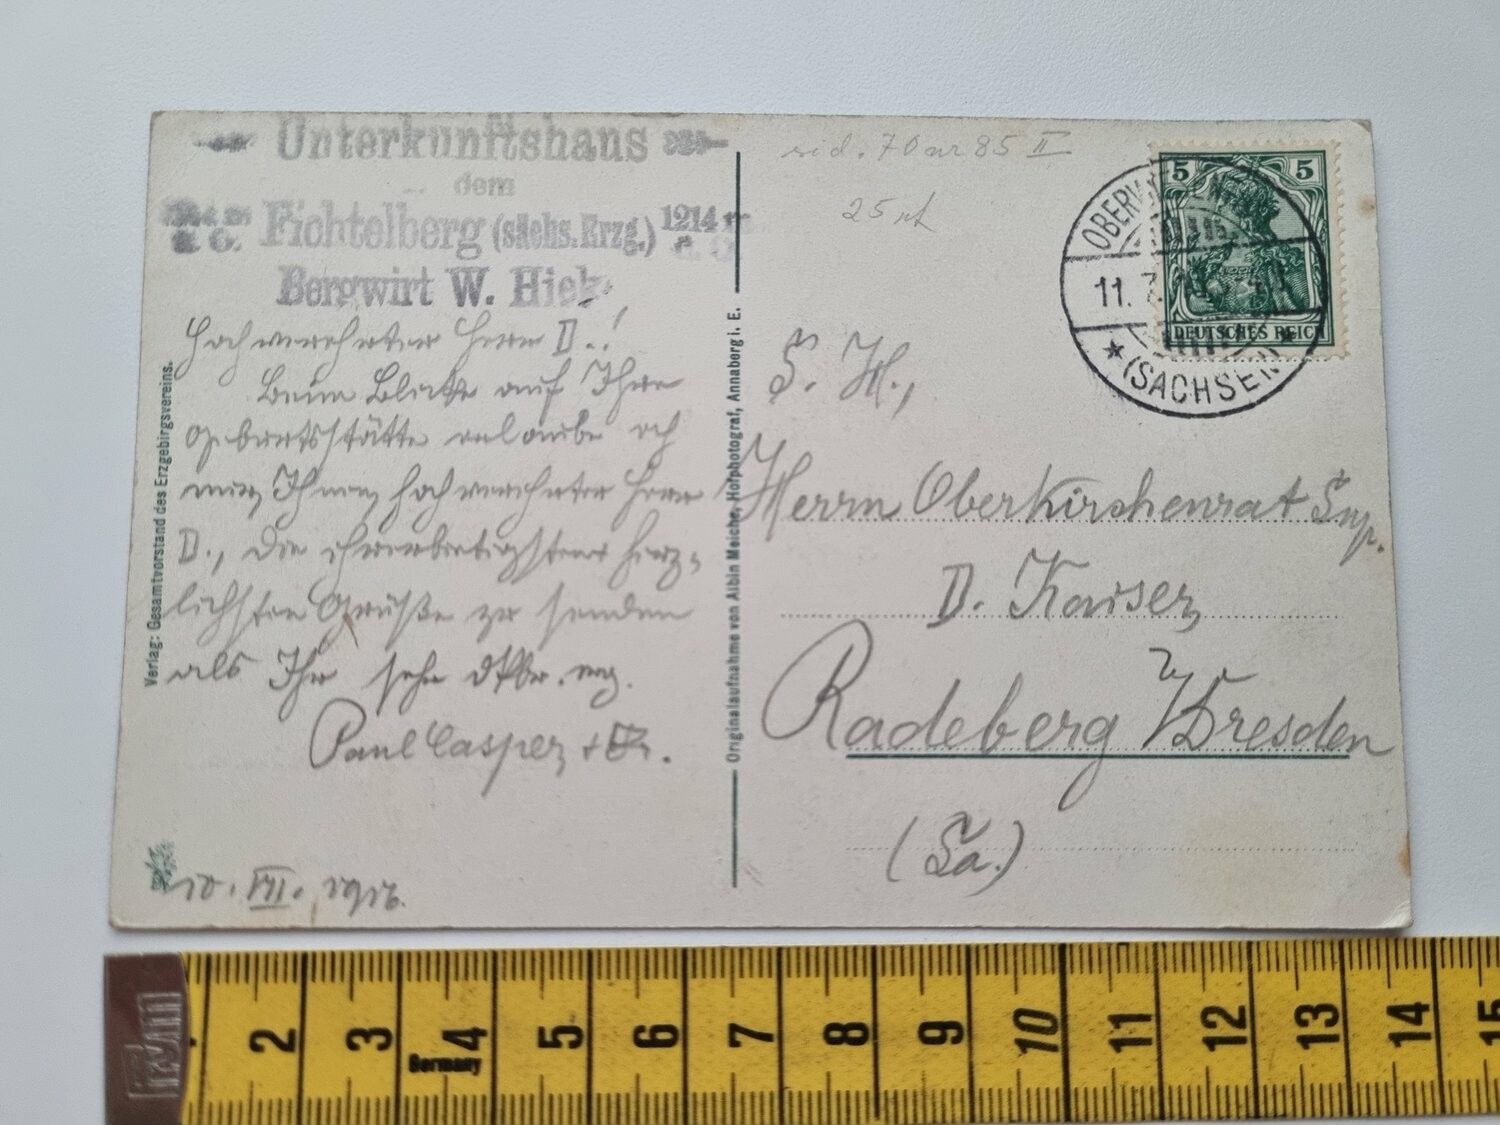 Unterkunftshaus
dem
Fichtelberg (sächs. Erzg.) 1214 m
Bergwirt W. Hiek
sid. 70 nr 85 II
25 rt
OBERW
11. 7.
(SACHSEN)
5 5
DEUTSCHES REICH
Hochverehrter Herr D.!
Beim Blicke auf Ihre
Geburtsstätte erlaube ich
mir, Ihnen, hochverehrter Herr
D., die ehrerbietigsten herz-
lichsten Grüße zu senden
als Ihr sehr
Paul Casper
10. VII. 1916.
Verlag: Gesamtvorstand des Erzgebirgsvereins.
Originalaufnahme von Albin Meiche, Hofphotograf, Annaberg i. E.
S. H.,
Herrn Oberkirchenrat Sup.
D. Kaiser,
Radeberg /Dresden
(Sa.)
2 3 4 5 6 7 8 9 10 11 12 13 14 15
Germany